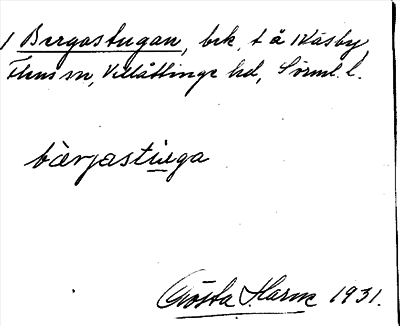 1 Bergastugan, bek. t å Väsby,
Flens sn, Villåttinge hd, Sörml. l.
bærjastuga
Gösta Harm 1931.